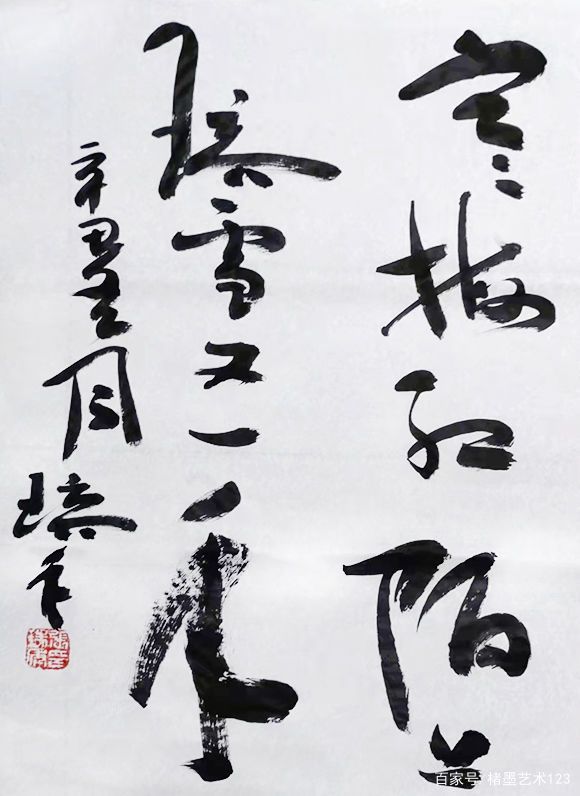 寒梅红陌上
瑞雪又一年
辛丑 月 瑞
百家号/楮墨艺术123